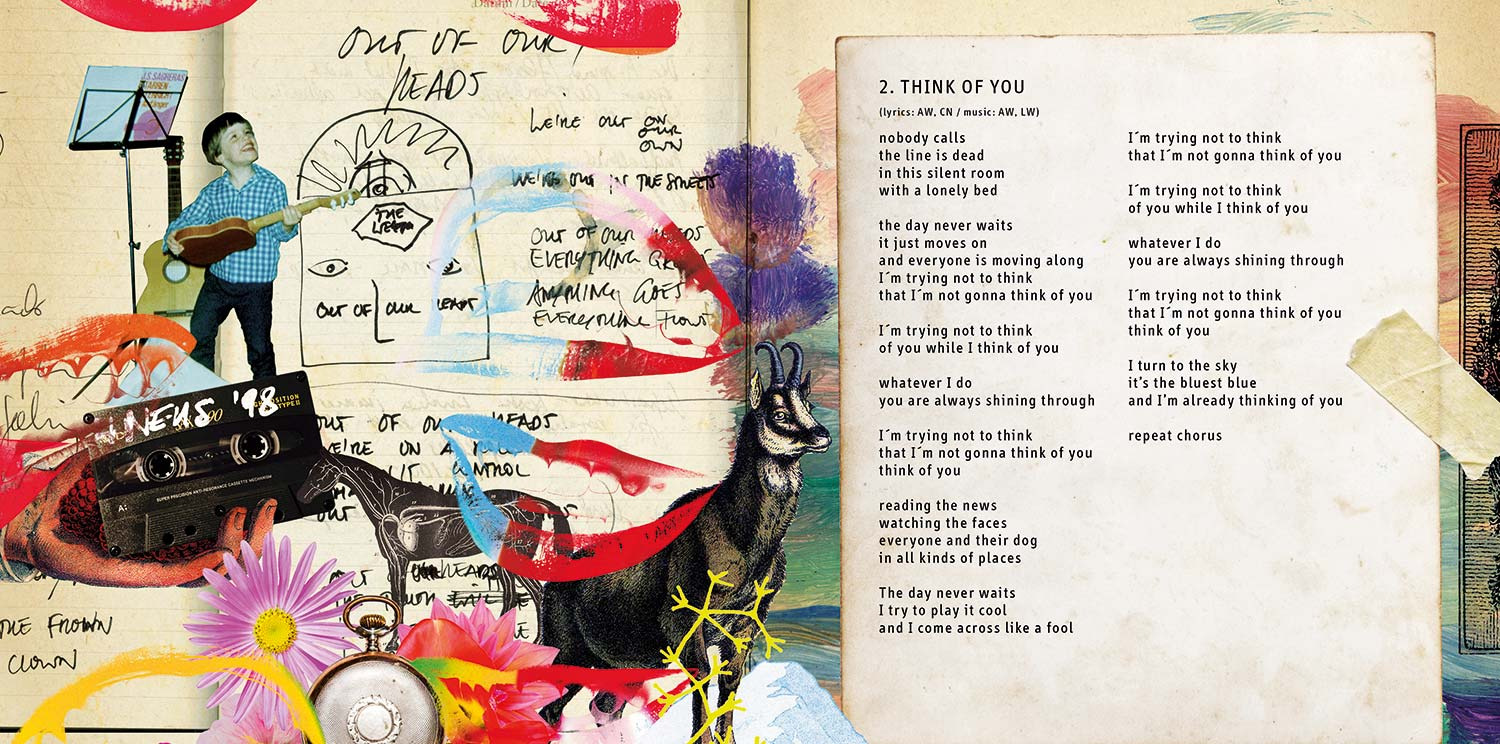 OUT OF OUR
HEADS
WE'RE OUT ON
OUR
OWN
WE'RE OUT IN THE STREETS
OUT OF OUR HEADS
EVERYTHING
ANYTHING GOES
EVERYTHING
THE
OUT OF OUR
J.S. SAGRERAS
NEUS '98
90
POSITION
TYPE II
SUPER PRECISION ANTI-RESONANCE CASSETTE MECHANISM
A:
OUT OF OUR HEADS
WE'RE ON A
OUT
OUT
HEADS
THE FROWN
CLOWN
2. THINK OF YOU
(lyrics: AW, CN / music: AW, LW)
nobody calls
the line is dead
in this silent room
with a lonely bed
the day never waits
it just moves on
and everyone is moving along
I´m trying not to think
that I´m not gonna think of you
I´m trying not to think
of you while I think of you
whatever I do
you are always shining through
I´m trying not to think
that I´m not gonna think of you
think of you
reading the news
watching the faces
everyone and their dog
in all kinds of places
The day never waits
I try to play it cool
and I come across like a fool
I´m trying not to think
that I´m not gonna think of you
I´m trying not to think
of you while I think of you
whatever I do
you are always shining through
I´m trying not to think
that I´m not gonna think of you
think of you
I turn to the sky
it's the bluest blue
and I'm already thinking of you
repeat chorus